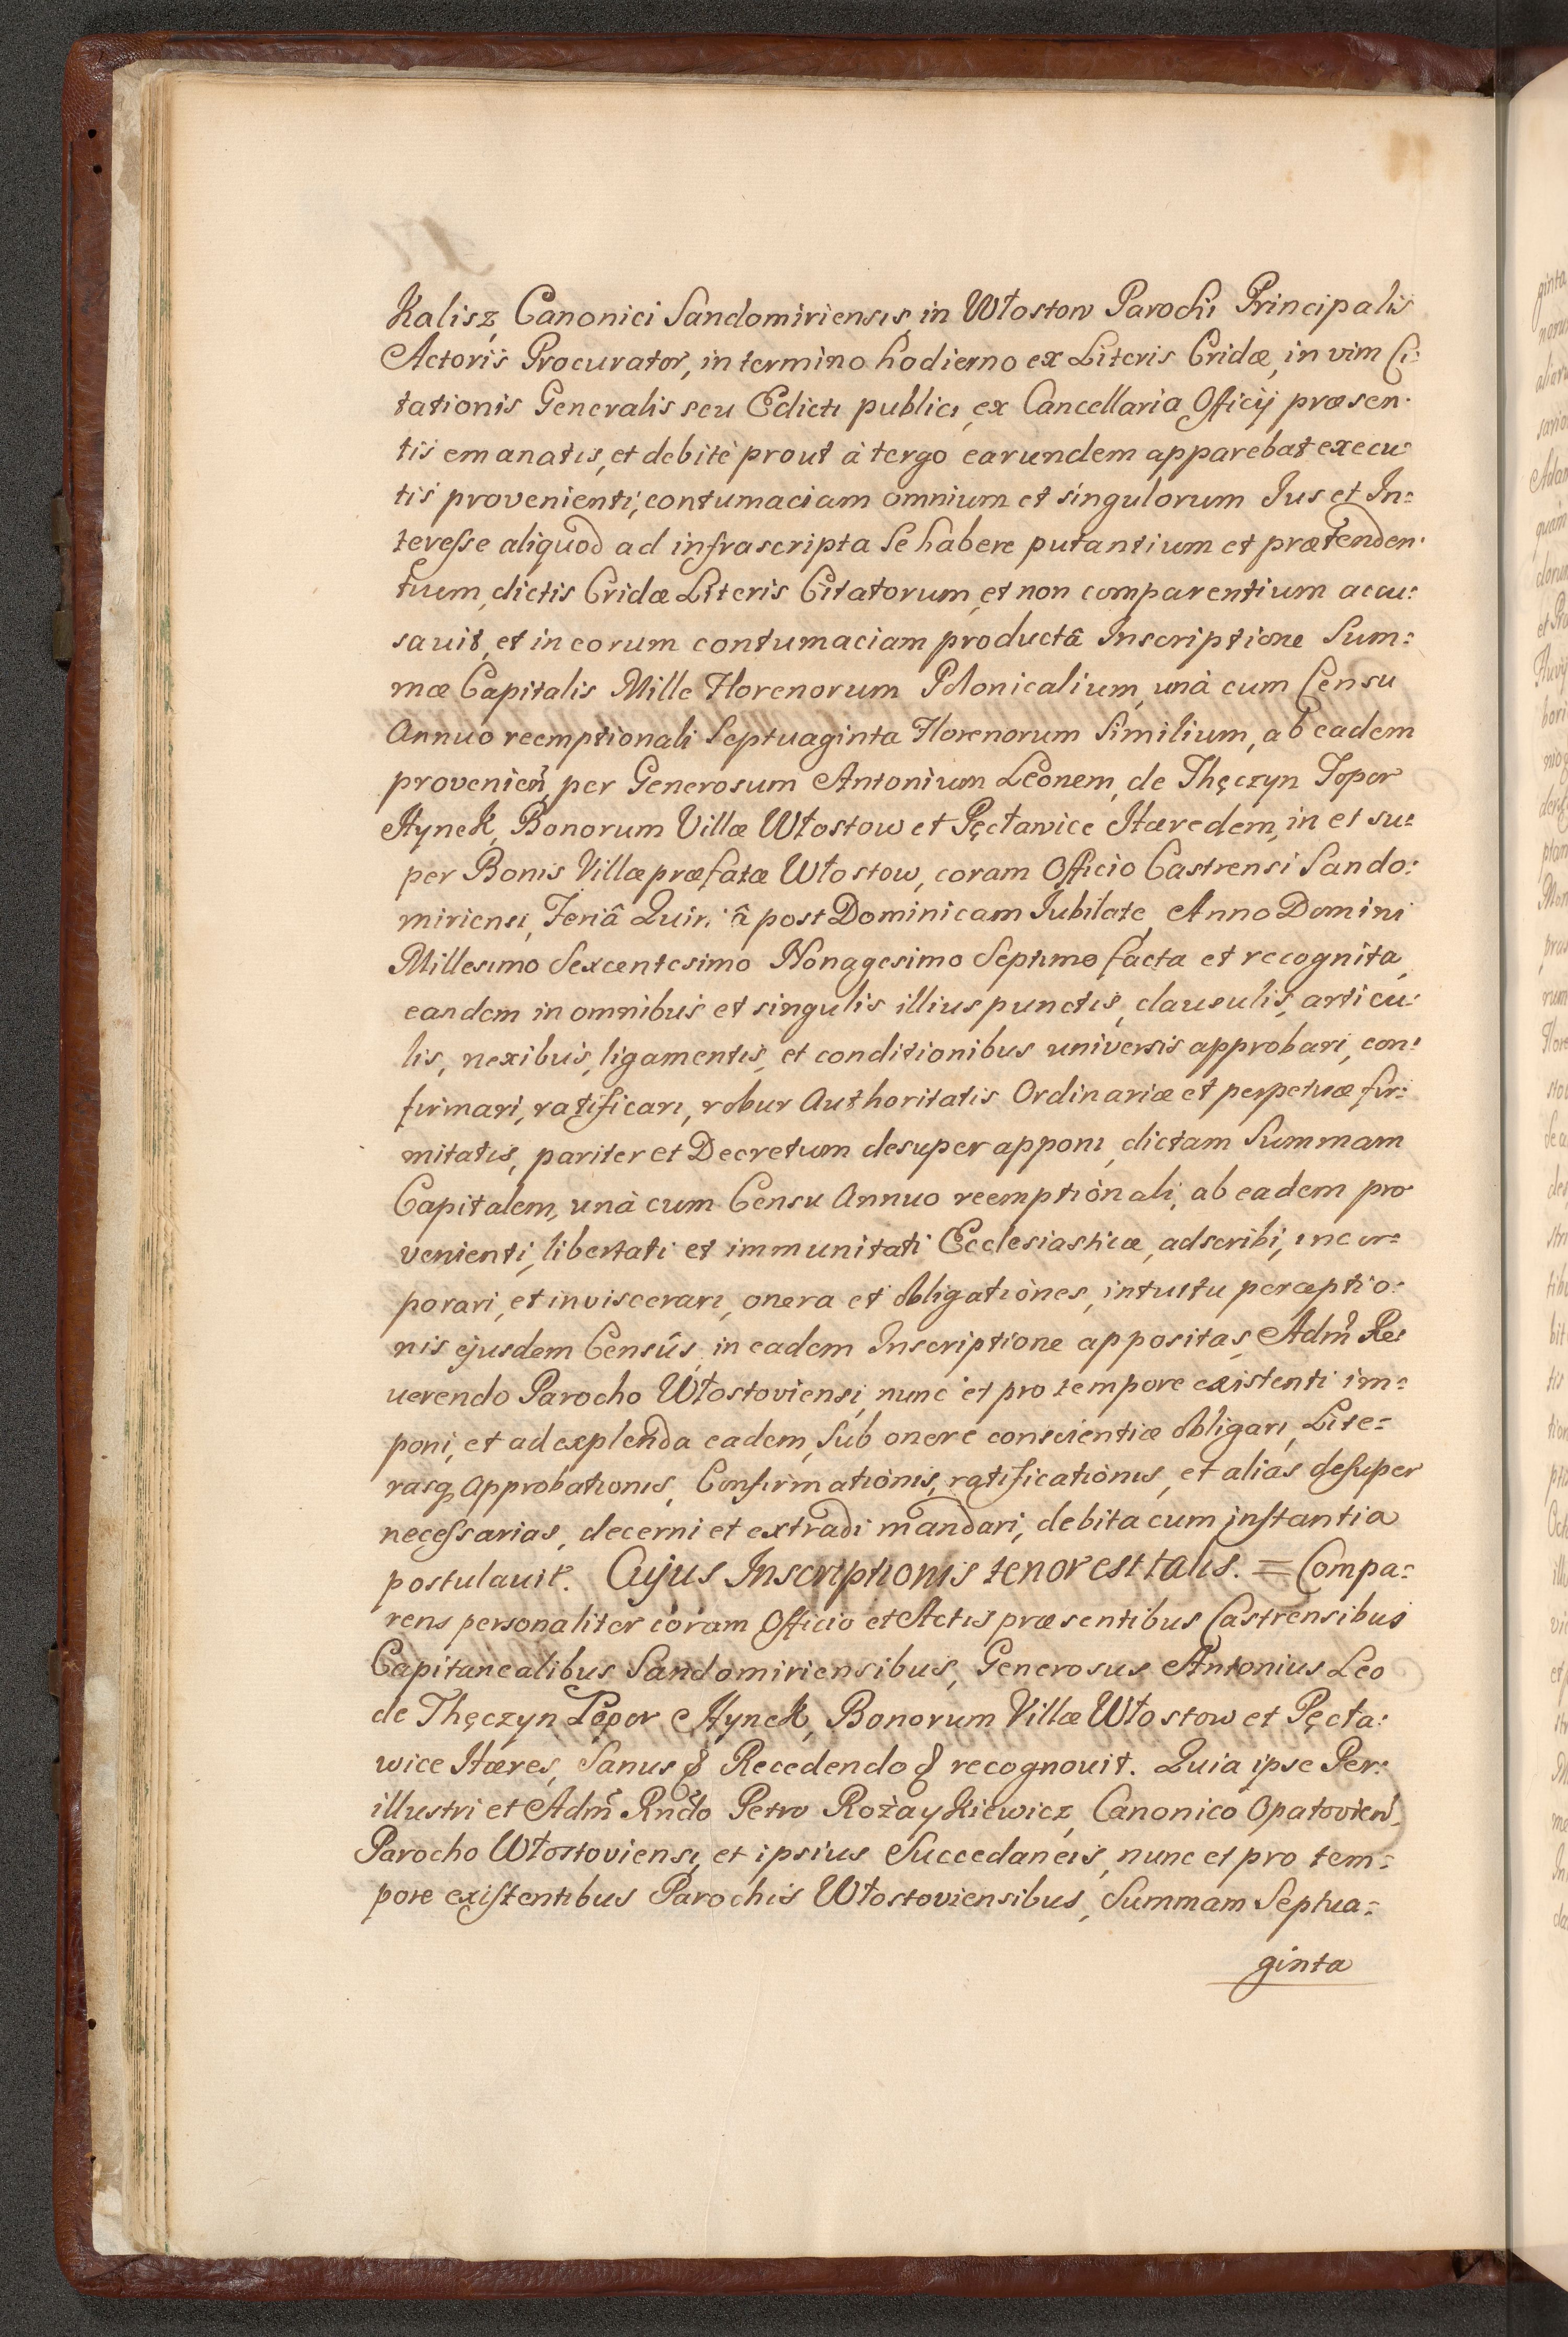 Kalisz, Canonici Sandomiriensis, in Włostow Parochi Principalis
Actoris Procurator, in termino hodierno ex Literis Cridæ, in vim Ci:
tationis Generalis seu Edicti publici, ex Cancellaria Officij præsen:
tis emanatis, et debitè prout à tergo earundem apparebat execu:
tis provenienti, contumaciam omnium et singulorum Jus et In:
teresse aliquod ad infrascripta Se habere putantium et prætenden:
tium, dictis Cridæ Literis Citatorum, et non comparentium accu:
sauit, et in eorum contumaciam productâ Inscriptione Sum:
mæ Capitalis Mille Florenorum Polonicalium, unà cum Censu
Annuo reemptionali Septuaginta Florenorum Similium, ab eadem
provenień, per Generosum Antonium Leonem, de Thęczyn Topor
Hynek, Bonorum Villæ Włostow et Pęcławice Hæredem, in et su:
per Bonis Villæ præfatæ Włostow, coram Officio Castrensi Sando:
miriensi, Feriâ Quintâ post Dominicam Jubilate, Anno Domini
Millesimo Sexcentesimo Nonagesimo Septimo facta et recognita,
eandem in omnibus et singulis illius punctis, clausulis, articu:
lis, nexibus, ligamentis, et conditionibus universis approbari, con:
firmari, ratificari, robur Authoritatis Ordinariæ et perpetuæ fir:
mitatis, pariter et Decretum desuper apponi, dictam Summam
Capitalem, unà cum Censu Annuo reemptionali, ab eadem pro
venienti, libertati et immunitati Ecclesiasticæ, adscribi, incor:
porari, et inviscerari, onera et obligationes, intuitu perceptio:
nis ejusdem Censûs, in eadem Inscriptione appositas, Adm̃ Re:
uerendo Parocho Włostoviensi, nunc et pro tempore existenti im:
poni, et ad explenda eadem, Sub onere conscientiæ obligari, Lite:
rasq Approbationis, Confirmationis, ratificationis, et alias desuper
necessarias, decerni et extradi mandari, debita cum instantia
postulauit. Cujus Inscriptionis tenor est talis. = Compa:
rens personaliter coram Officio et Actis præsentibus Castrensibus
Capitanealibus Sandomiriensibus, Generosus Antonius Leo
de Thęczyn Topor Hynek, Bonorum Villæ Włostow et Pęcła:
wice Hæres, Sanus & Recedendo & recognouit. Quia ipse Per:
illustri et Adm̃ Rńdo Petro Rożaykiewicz, Canonico Opatovień,
Parocho Włostoviensi, et ipsius Succedaneis, nunc et pro tem:
pore existentibus Parochis Włostoviensibus, Summam Septua:
ginta